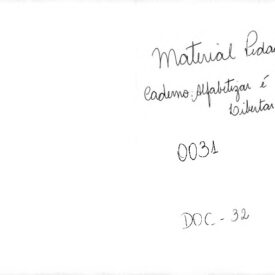 Material Peda
Caderno: Alfabetizar é
Libertar
0031
DOC - 32